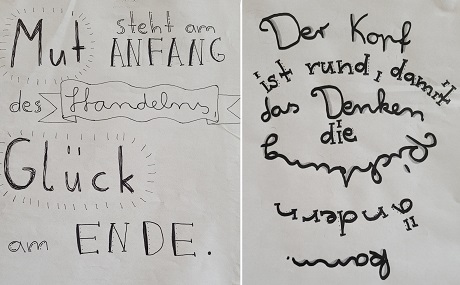 Mut steht am
ANFANG
des Handelns,
Glück
am ENDE.
Der Kopf
ist rund, damit
das Denken
die
Richtung
ändern
kann.